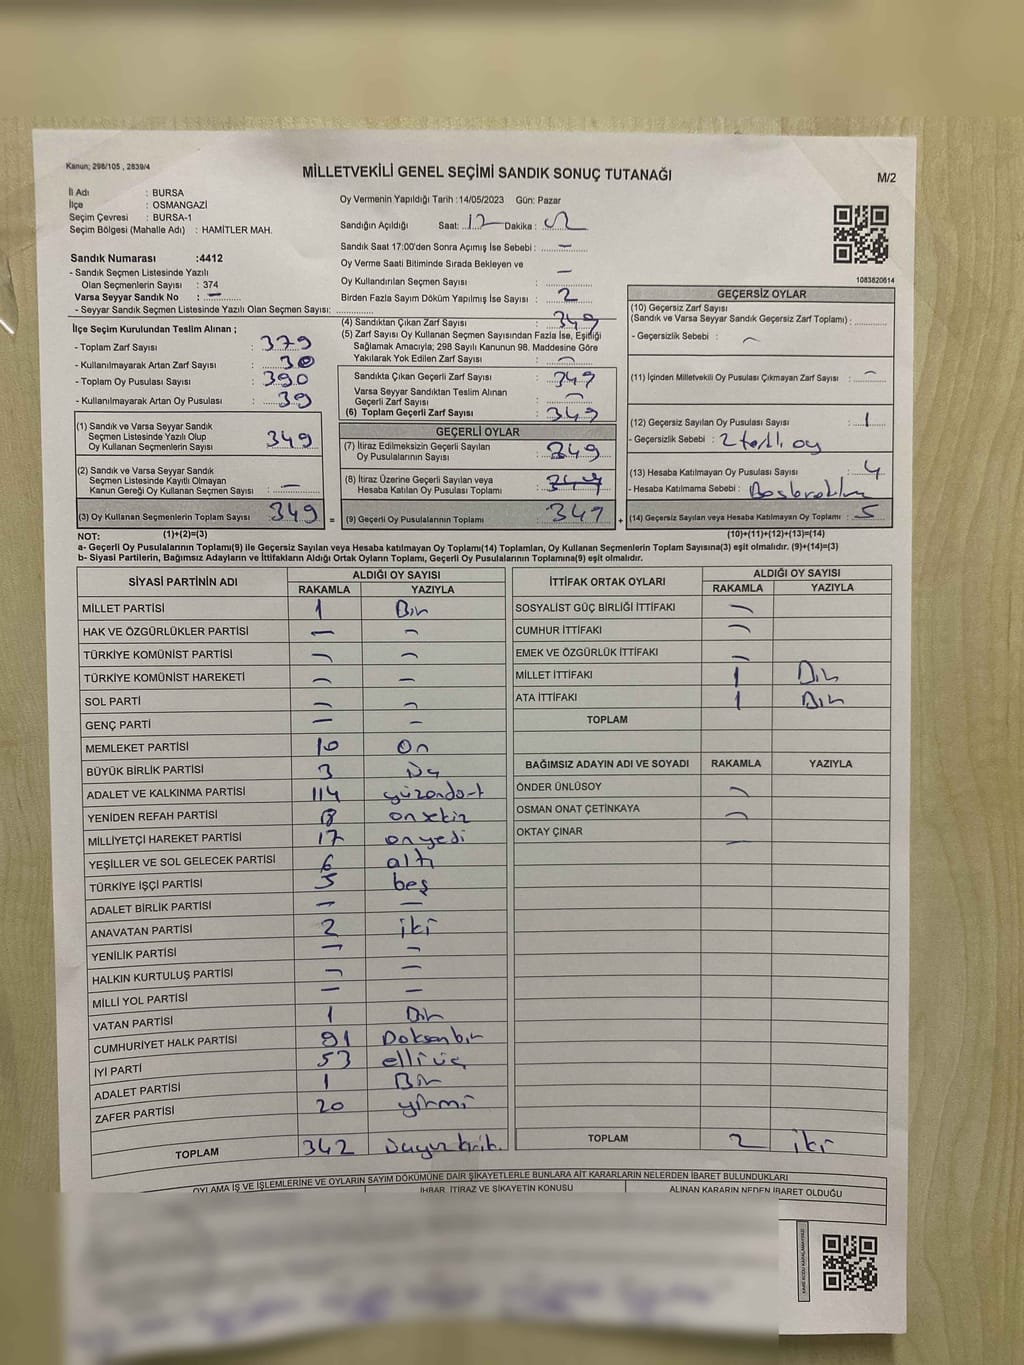 Kanun; 298/105 , 2839/4
MİLLETVEKİLİ GENEL SEÇİMİ SANDIK SONUÇ TUTANAĞI
M/2
İl Adı : BURSA
İlçe : OSMANGAZİ
Seçim Çevresi : BURSA-1
Seçim Bölgesi (Mahalle Adı) : HAMİTLER MAH.
Sandık Numarası :4412
- Sandık Seçmen Listesinde Yazılı
Olan Seçmenlerin Sayısı : 374
Varsa Seyyar Sandık No : —
- Seyyar Sandık Seçmen Listesinde Yazılı Olan Seçmen Sayısı:
Oy Vermenin Yapıldığı Tarih :14/05/2023 Gün: Pazar
Sandığın Açıldığı Saat: Dakika:
Sandık Saat 17:00'den Sonra Açımış İse Sebebi : —
Oy Verme Saati Bitiminde Sırada Bekleyen ve
Oy Kullandırılan Seçmen Sayısı : —
Birden Fazla Sayım Döküm Yapılmış İse Sayısı : 2
1083820614
İlçe Seçim Kurulundan Teslim Alınan ;
- Toplam Zarf Sayısı : 379
- Kullanılmayarak Artan Zarf Sayısı : 30
- Toplam Oy Pusulası Sayısı : 390
- Kullanılmayarak Artan Oy Pusulası : 39
(1) Sandık ve Varsa Seyyar Sandık
Seçmen Listesinde Yazılı Olup
Oy Kullanan Seçmenlerin Sayısı : 349
(2) Sandık ve Varsa Seyyar Sandık
Seçmen Listesinde Kayıtlı Olmayan
Kanun Gereği Oy Kullanan Seçmen Sayısı : —
(3) Oy Kullanan Seçmenlerin Toplam Sayısı 349 =
(1)+(2)=(3)
(4) Sandıktan Çıkan Zarf Sayısı : 349
(5) Zarf Sayısı Oy Kullanan Seçmen Sayısından Fazla İse, Eşitliği
Sağlamak Amacıyla; 298 Sayılı Kanunun 98. Maddesine Göre
Yakılarak Yok Edilen Zarf Sayısı : —
Sandıkta Çıkan Geçerli Zarf Sayısı : 349
Varsa Seyyar Sandıktan Teslim Alınan
Geçerli Zarf Sayısı : —
(6) Toplam Geçerli Zarf Sayısı : 349
GEÇERLİ OYLAR
(7) İtiraz Edilmeksizin Geçerli Sayılan
Oy Pusulalarının Sayısı :
(8) İtiraz Üzerine Geçerli Sayılan veya
Hesaba Katılan Oy Pusulası Toplamı :
(9) Geçerli Oy Pusulalarının Toplamı : +
GEÇERSİZ OYLAR
(10) Geçersiz Zarf Sayısı
(Sandık ve Varsa Seyyar Sandık Geçersiz Zarf Toplamı) :
- Geçersizlik Sebebi : —
(11) İçinden Milletvekili Oy Pusulası Çıkmayan Zarf Sayısı : —
(12) Geçersiz Sayılan Oy Pusulası Sayısı : 1
- Geçersizlik Sebebi : 2 oy
(13) Hesaba Katılmayan Oy Pusulası Sayısı : 4
- Hesaba Katılmama Sebebi :
(14) Geçersiz Sayılan veya Hesaba Katılmayan Oy Toplamı : 5
(10)+(11)+(12)+(13)=(14)
NOT:
a- Geçerli Oy Pusulalarının Toplamı(9) ile Geçersiz Sayılan veya Hesaba Katılmayan Oy Toplamı(14) Toplamları, Oy Kullanan Seçmenlerin Toplam Sayısına(3) eşit olmalıdır. (9)+(14)=(3)
b- Siyasi Partilerin, Bağımsız Adayların ve İttifakların Aldığı Ortak Oyların Toplamı, Geçerli Oy Pusulalarının Toplamına(9) eşit olmalıdır.
SİYASİ PARTİNİN ADI ALDIĞI OY SAYISI
RAKAMLA YAZIYLA
MİLLET PARTİSİ 1 Bir
HAK VE ÖZGÜRLÜKLER PARTİSİ — —
TÜRKİYE KOMÜNİST PARTİSİ — —
TÜRKİYE KOMÜNİST HAREKETİ — —
SOL PARTİ — —
GENÇ PARTİ — —
MEMLEKET PARTİSİ 10 On
BÜYÜK BİRLİK PARTİSİ 3 Üç
ADALET VE KALKINMA PARTİSİ 114 yüzondört
YENİDEN REFAH PARTİSİ 18 onsekiz
MİLLİYETÇİ HAREKET PARTİSİ 17 onyedi
YEŞİLLER VE SOL GELECEK PARTİSİ 6 altı
TÜRKİYE İŞÇİ PARTİSİ 5 beş
ADALET BİRLİK PARTİSİ — —
ANAVATAN PARTİSİ 2 iki
YENİLİK PARTİSİ — —
HALKIN KURTULUŞ PARTİSİ — —
MİLLİ YOL PARTİSİ — —
VATAN PARTİSİ 1 Bir
CUMHURİYET HALK PARTİSİ 91 Doksanbir
İYİ PARTİ 53 elliüç
ADALET PARTİSİ 1 Bir
ZAFER PARTİSİ 20 yirmi
TOPLAM 342
İTTİFAK ORTAK OYLARI ALDIĞI OY SAYISI
RAKAMLA YAZIYLA
SOSYALİST GÜÇ BİRLİĞİ İTTİFAKI —
CUMHUR İTTİFAKI —
EMEK VE ÖZGÜRLÜK İTTİFAKI —
MİLLET İTTİFAKI 1 Bir
ATA İTTİFAKI 1 Bir
TOPLAM
BAĞIMSIZ ADAYIN ADI VE SOYADI RAKAMLA YAZIYLA
ÖNDER ÜNLÜSOY —
OSMAN ONAT ÇETİNKAYA —
OKTAY ÇINAR —
TOPLAM 2 iki
OYLAMA İŞ VE İŞLEMLERİNE VE OYLARIN SAYIM DÖKÜMÜNE DAİR ŞİKAYETLERLE BUNLARA AİT KARARLARIN NELERDEN İBARET BULUNDUKLARI
İHBAR, İTİRAZ VE ŞİKAYETİN KONUSU ALINAN KARARIN NEDEN İBARET OLDUĞU